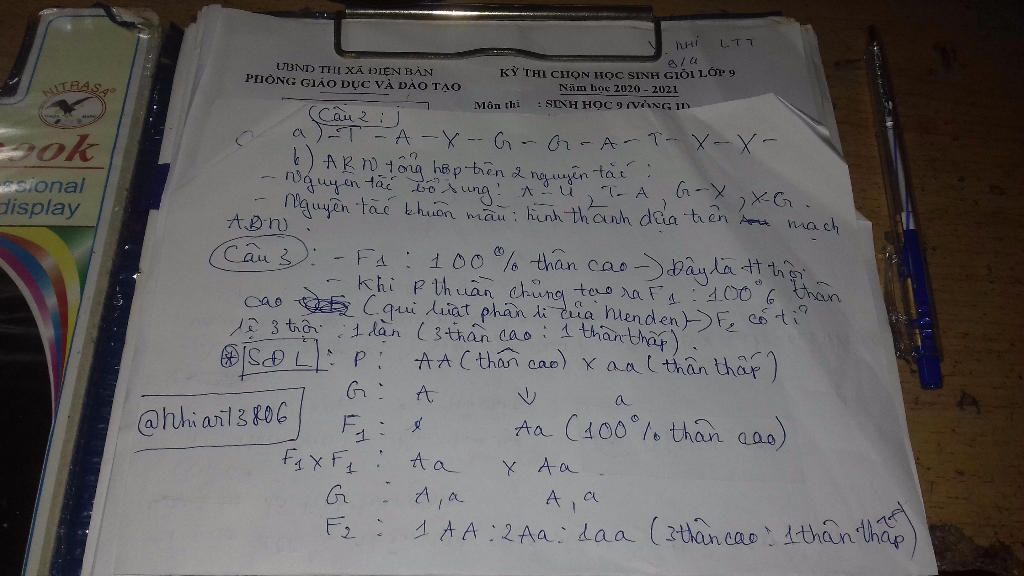 NHI LTT
9/4
UBND THỊ XÃ ĐIỆN BÀN
PHÒNG GIÁO DỤC VÀ ĐÀO TẠO
KỲ THI CHỌN HỌC SINH GIỎI LỚP 9
Năm học 2020 - 2021
Môn thi : SINH HỌC 9 (VÒNG II)
NITRASA
ook
sional
display
Câu 2:
a) - T - A - X - G - G - A - T - X - X -
b) ARN tổng hợp trên 2 nguyên tắc:
- Nguyên tắc bổ sung: A - U, T - A, G - X, X - G.
- Nguyên tắc khuôn mẫu: hình thành dựa trên mạch
ADN.
Câu 3: - F1: 100% thân cao -> Đây là tt trội
- Khi P thuần chủng tạo ra F1: 100% thân
cao (qui luật phân li của Menden) -> F2 có tỉ
lệ 3 trội : 1 lặn (3 thân cao : 1 thân thấp).
* SĐL: P: AA (thân cao) x aa (thân thấp)
G: A ↓ a
@nhiari3806
F1: Aa (100% thân cao)
F1 x F1: Aa x Aa
G: A, a A, a
F2: 1AA : 2Aa : 1aa (3 thân cao : 1 thân thấp)